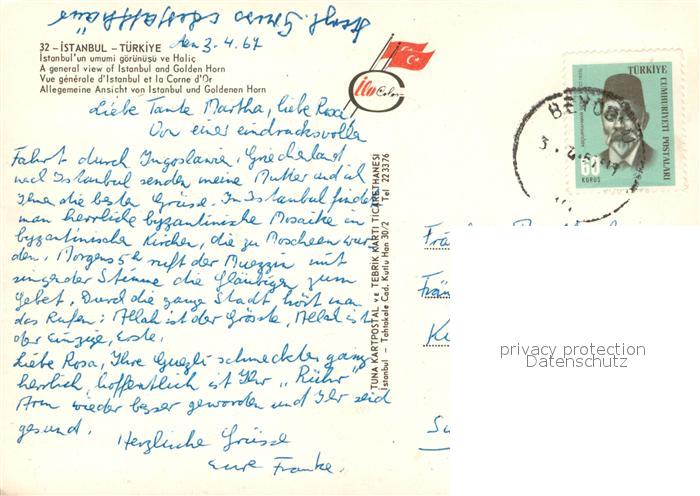 32 - İSTANBUL - TÜRKİYE
den 3.4.67
İstanbul'un umumi görünüşü ve Haliç
A general view of Istanbul and Golden Horn
Vue générale d'Istanbul et la Corne d'Or
Allegemeine Ansicht von Istanbul und Goldenen Horn
Liebe Tante Martha, liebe Rosa,
Von einer eindrucksvollen
Fahrt durch Jugoslawien, Griechenland
nach Istanbul senden meine Mutter und ich
Ihnen die besten Grüsse. In Istanbul findet
man herrliche byzantinische Mosaike in
byzantinischen Kirchen, die zu Moscheen wur
den. Morgens 5h ruft der Muezzin mit
singender Stimme die Gläubigen zum
Gebet. Durch die ganze Stadt hört man
das Rufen: Allah ist der Grösste, Allah ist
der Einzige, Erste.
Liebe Rosa, Ihre Guezli schmeckten ganz
herrlich, hoffentlich ist Ihr "Rühr"
Arm wieder besser geworden und Ihr seid
gesund.
Herzliche Grüsse
Eure Franke.
İlo Color
TUNA KARTPOSTAL ve TEBRİK KARTI TİCARETHANESİ
İstanbul - Tahtakale Cad. Kutlu Han 30/2 Tel 223376
TÜRKİYE
CUMHURİYETİ POSTALARI
60
KURUŞ
BEYOĞ
Frä
Frän
privacy protection
Datenschutz